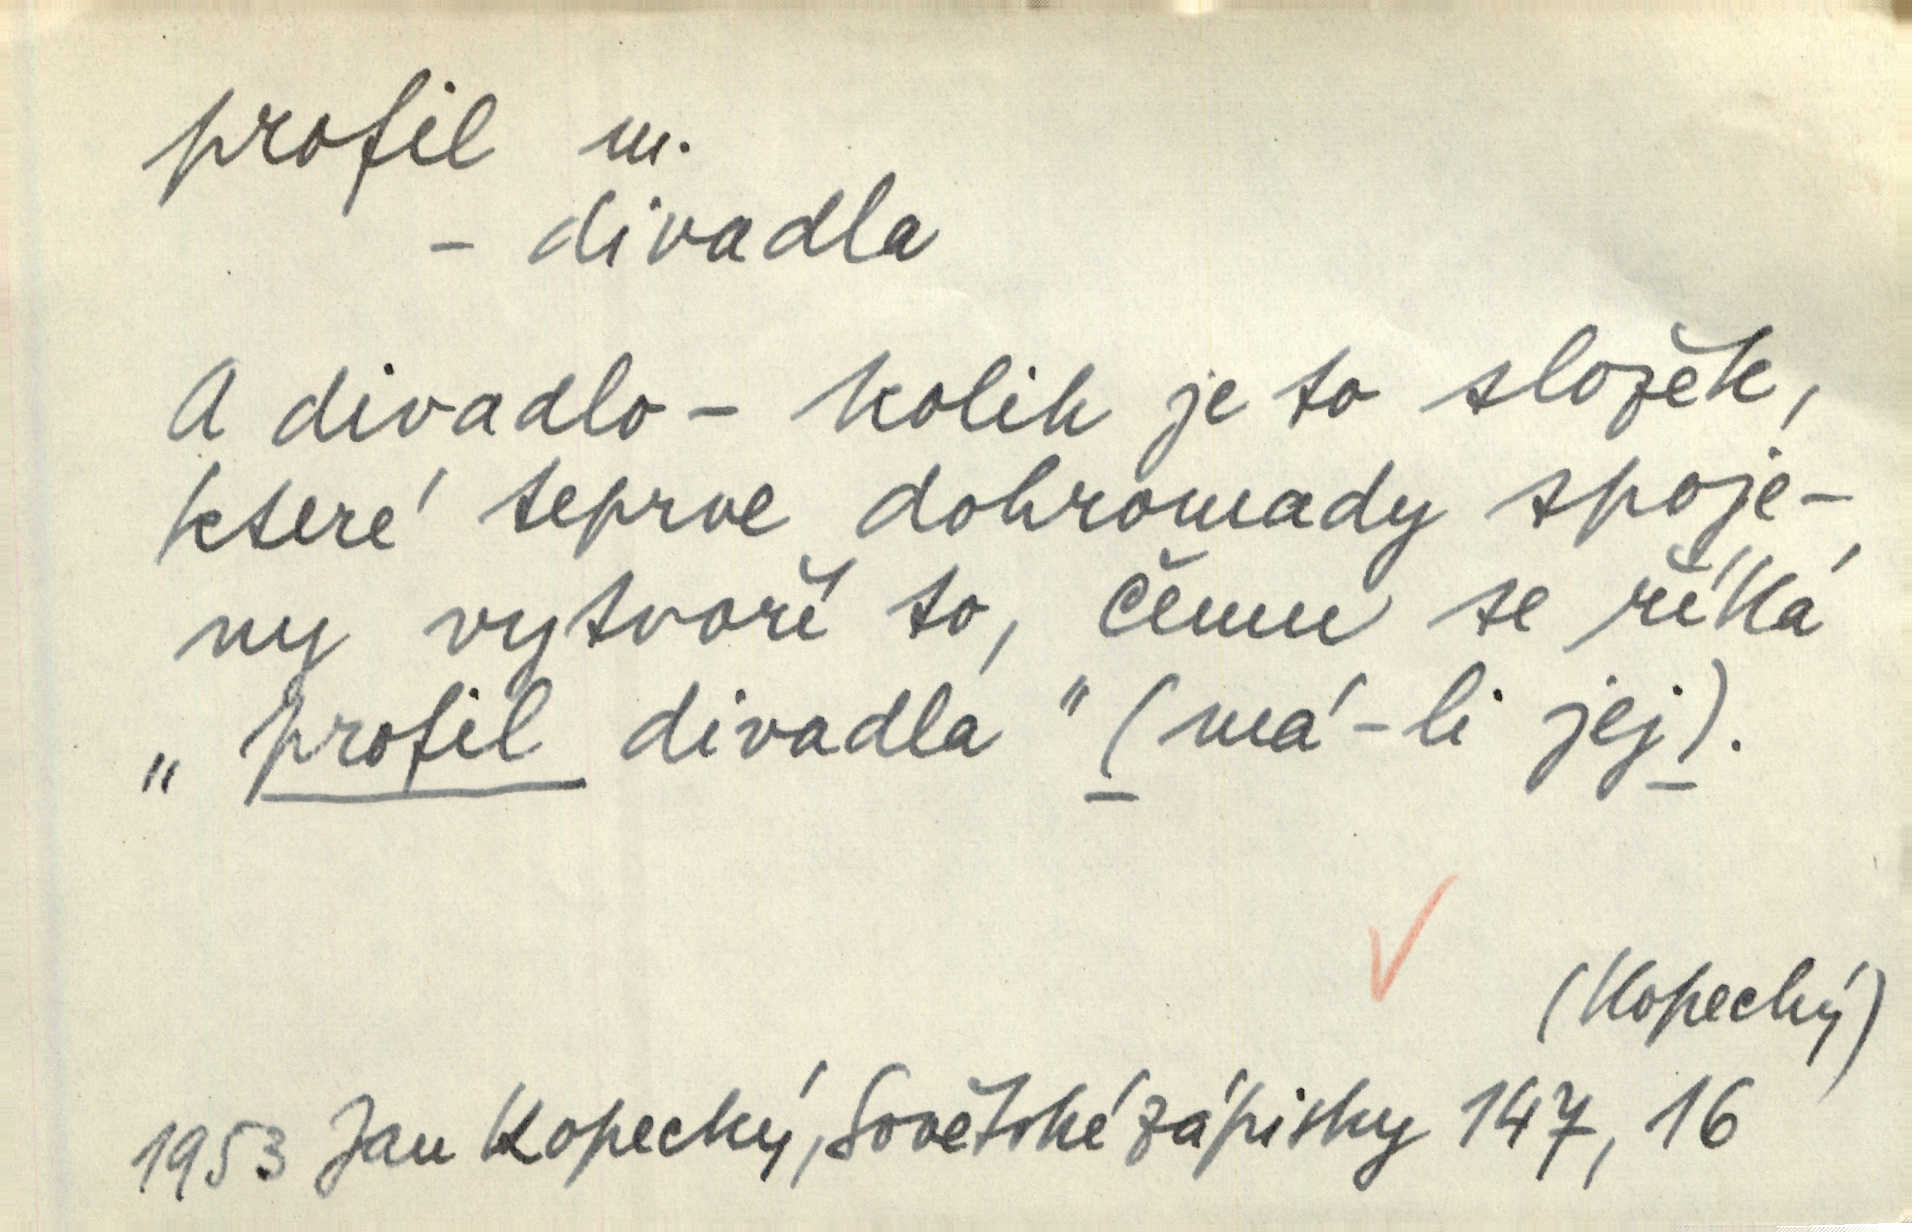 profil m.
- divadla
A divadlo - kolik je to složek,
které teprve dohromady spoje-
ny vytvoří to, čemu se říká
„profil divadla" (má-li jej).
(Kopecký)
1953 Jan Kopecký, Sovětské zápisky 147, 16